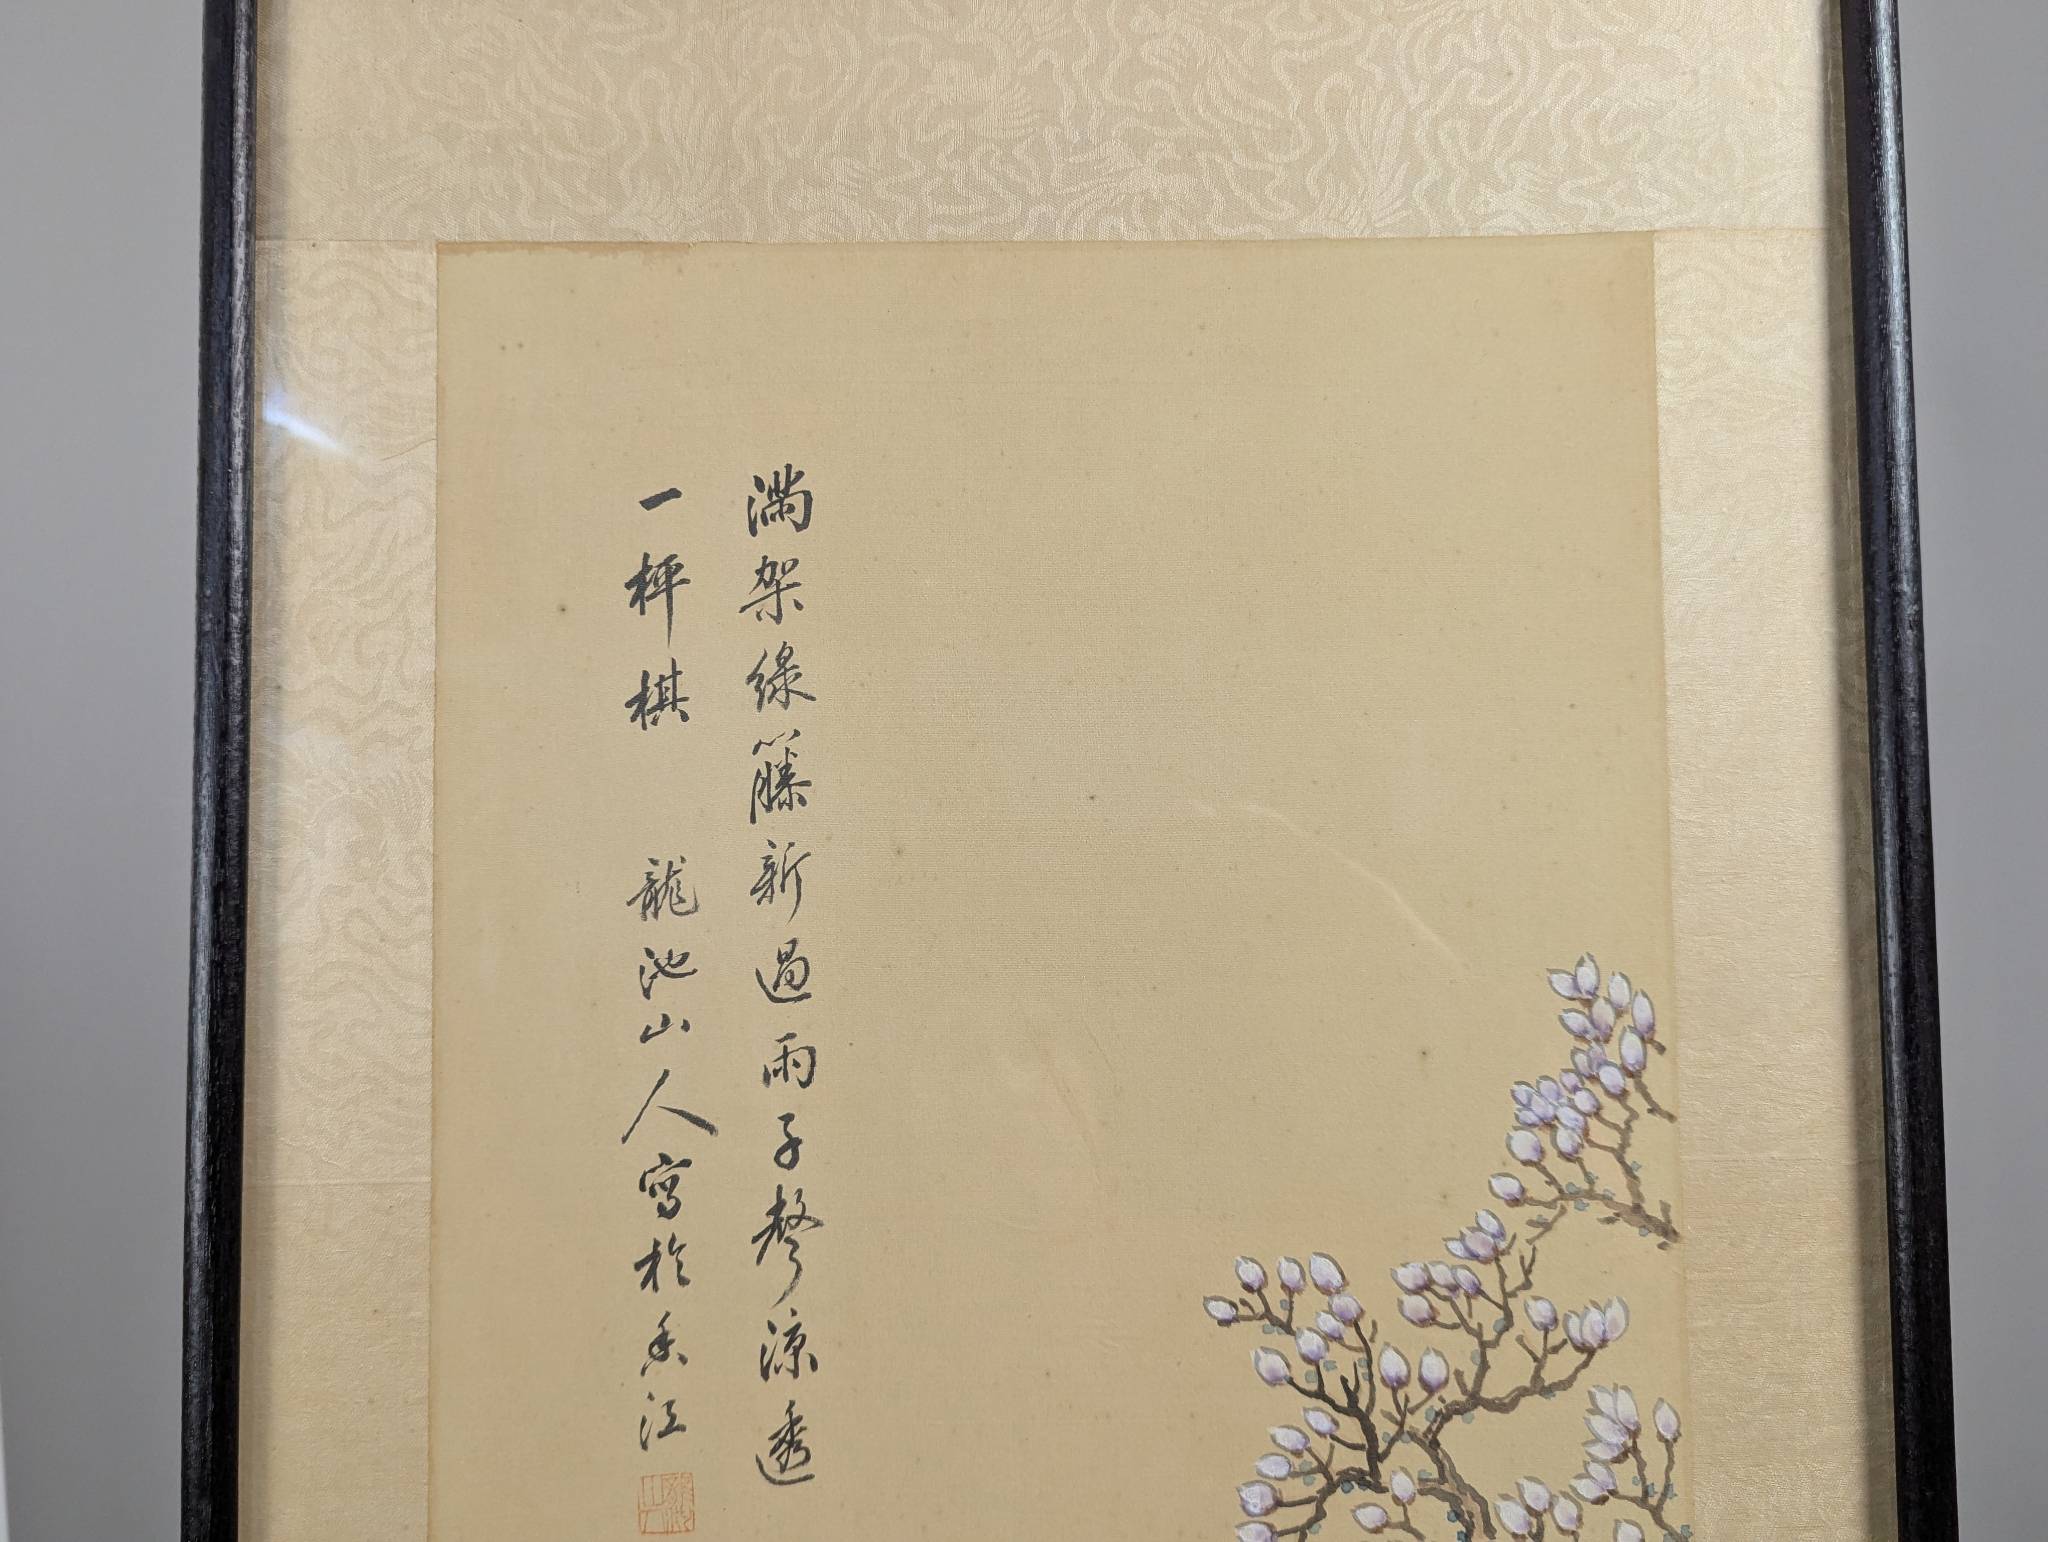 滿架綠籐新過雨子聲涼透
一枰棋 龍池山人寫於香江